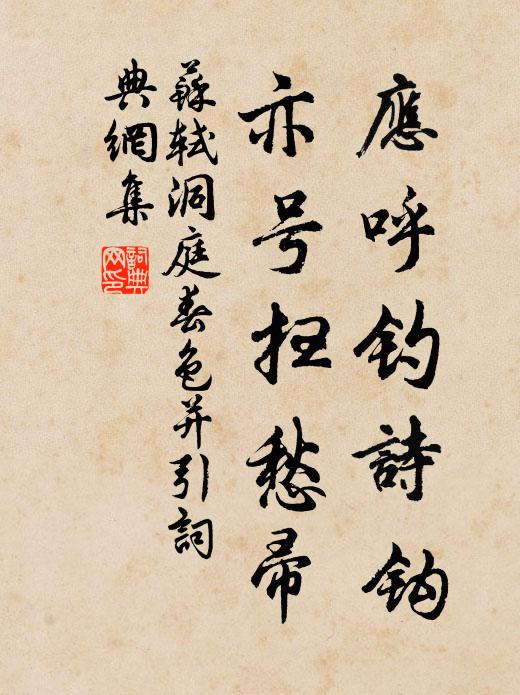 應呼釣詩鈎
亦号掃愁帚
蘇軾洞庭春色并引詞
典網集
詞典网印